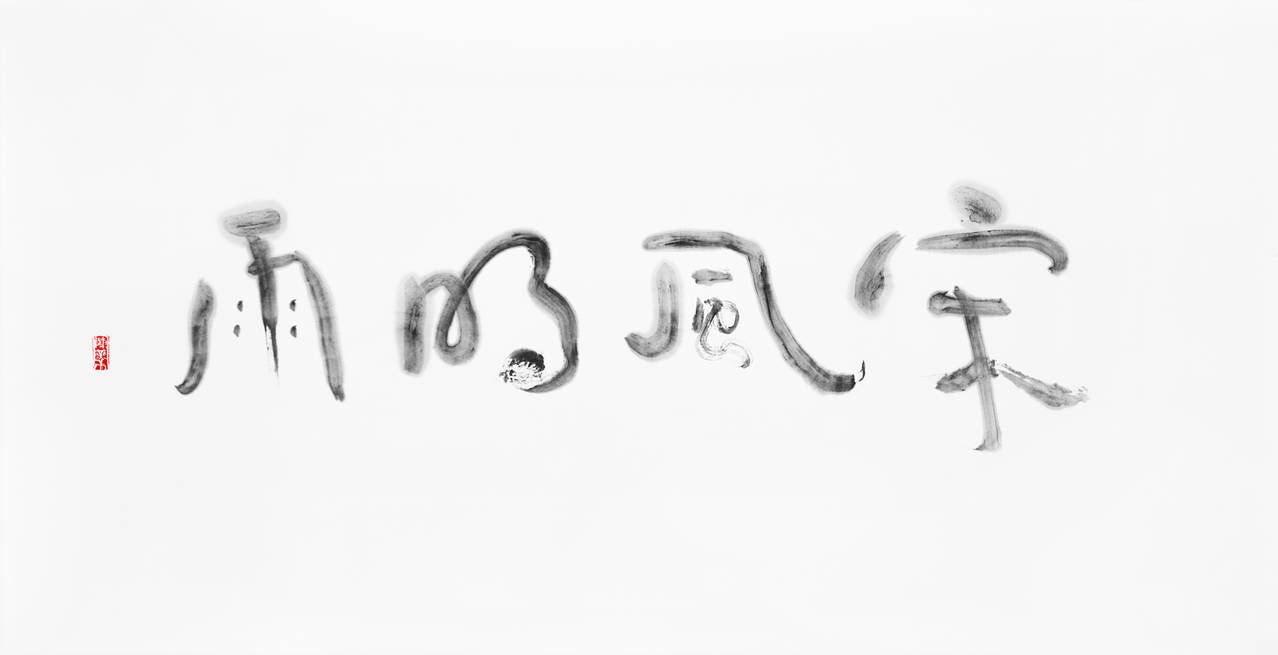 宋風明雨